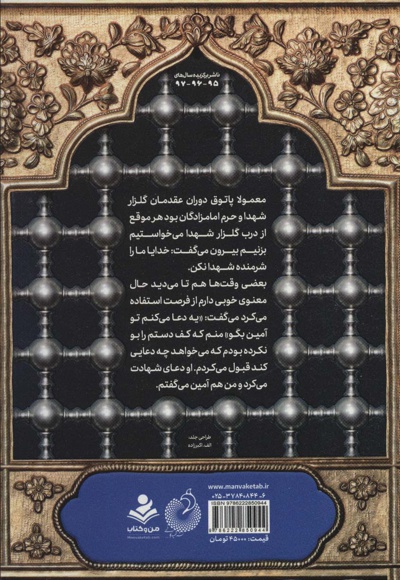 ناشر برگزیده سال‌های
۹۵-۹۶-۹۷
معمولا پاتوق دوران عقدمان گلزار
شهدا و حرم امامزادگان بود هر موقع
از درب گلزار شهدا می‌خواستیم
بزنیم بیرون می‌گفت: خدایا ما را
شرمنده شهدا نکن.
بعضی وقت‌ها هم تا می‌دید حال
معنوی خوبی دارم از فرصت استفاده
می‌کرد می‌گفت: «یه دعا می‌کنم تو
آمین بگو» منم که کف دستم را بو
نکرده بودم که می‌خواهد چه دعایی
کند قبول می‌کردم. او دعای شهادت
می‌کرد و من هم آمین می‌گفتم.
طراحی جلد:
الف. اکبرزاده
www.manvaketab.ir
۰۲۵-۳۷۸۴۰۸۴۴-۶
ISBN 9786222850944
9786222850944
قیمت: ۴۵۰۰۰ تومان
من و کتاب